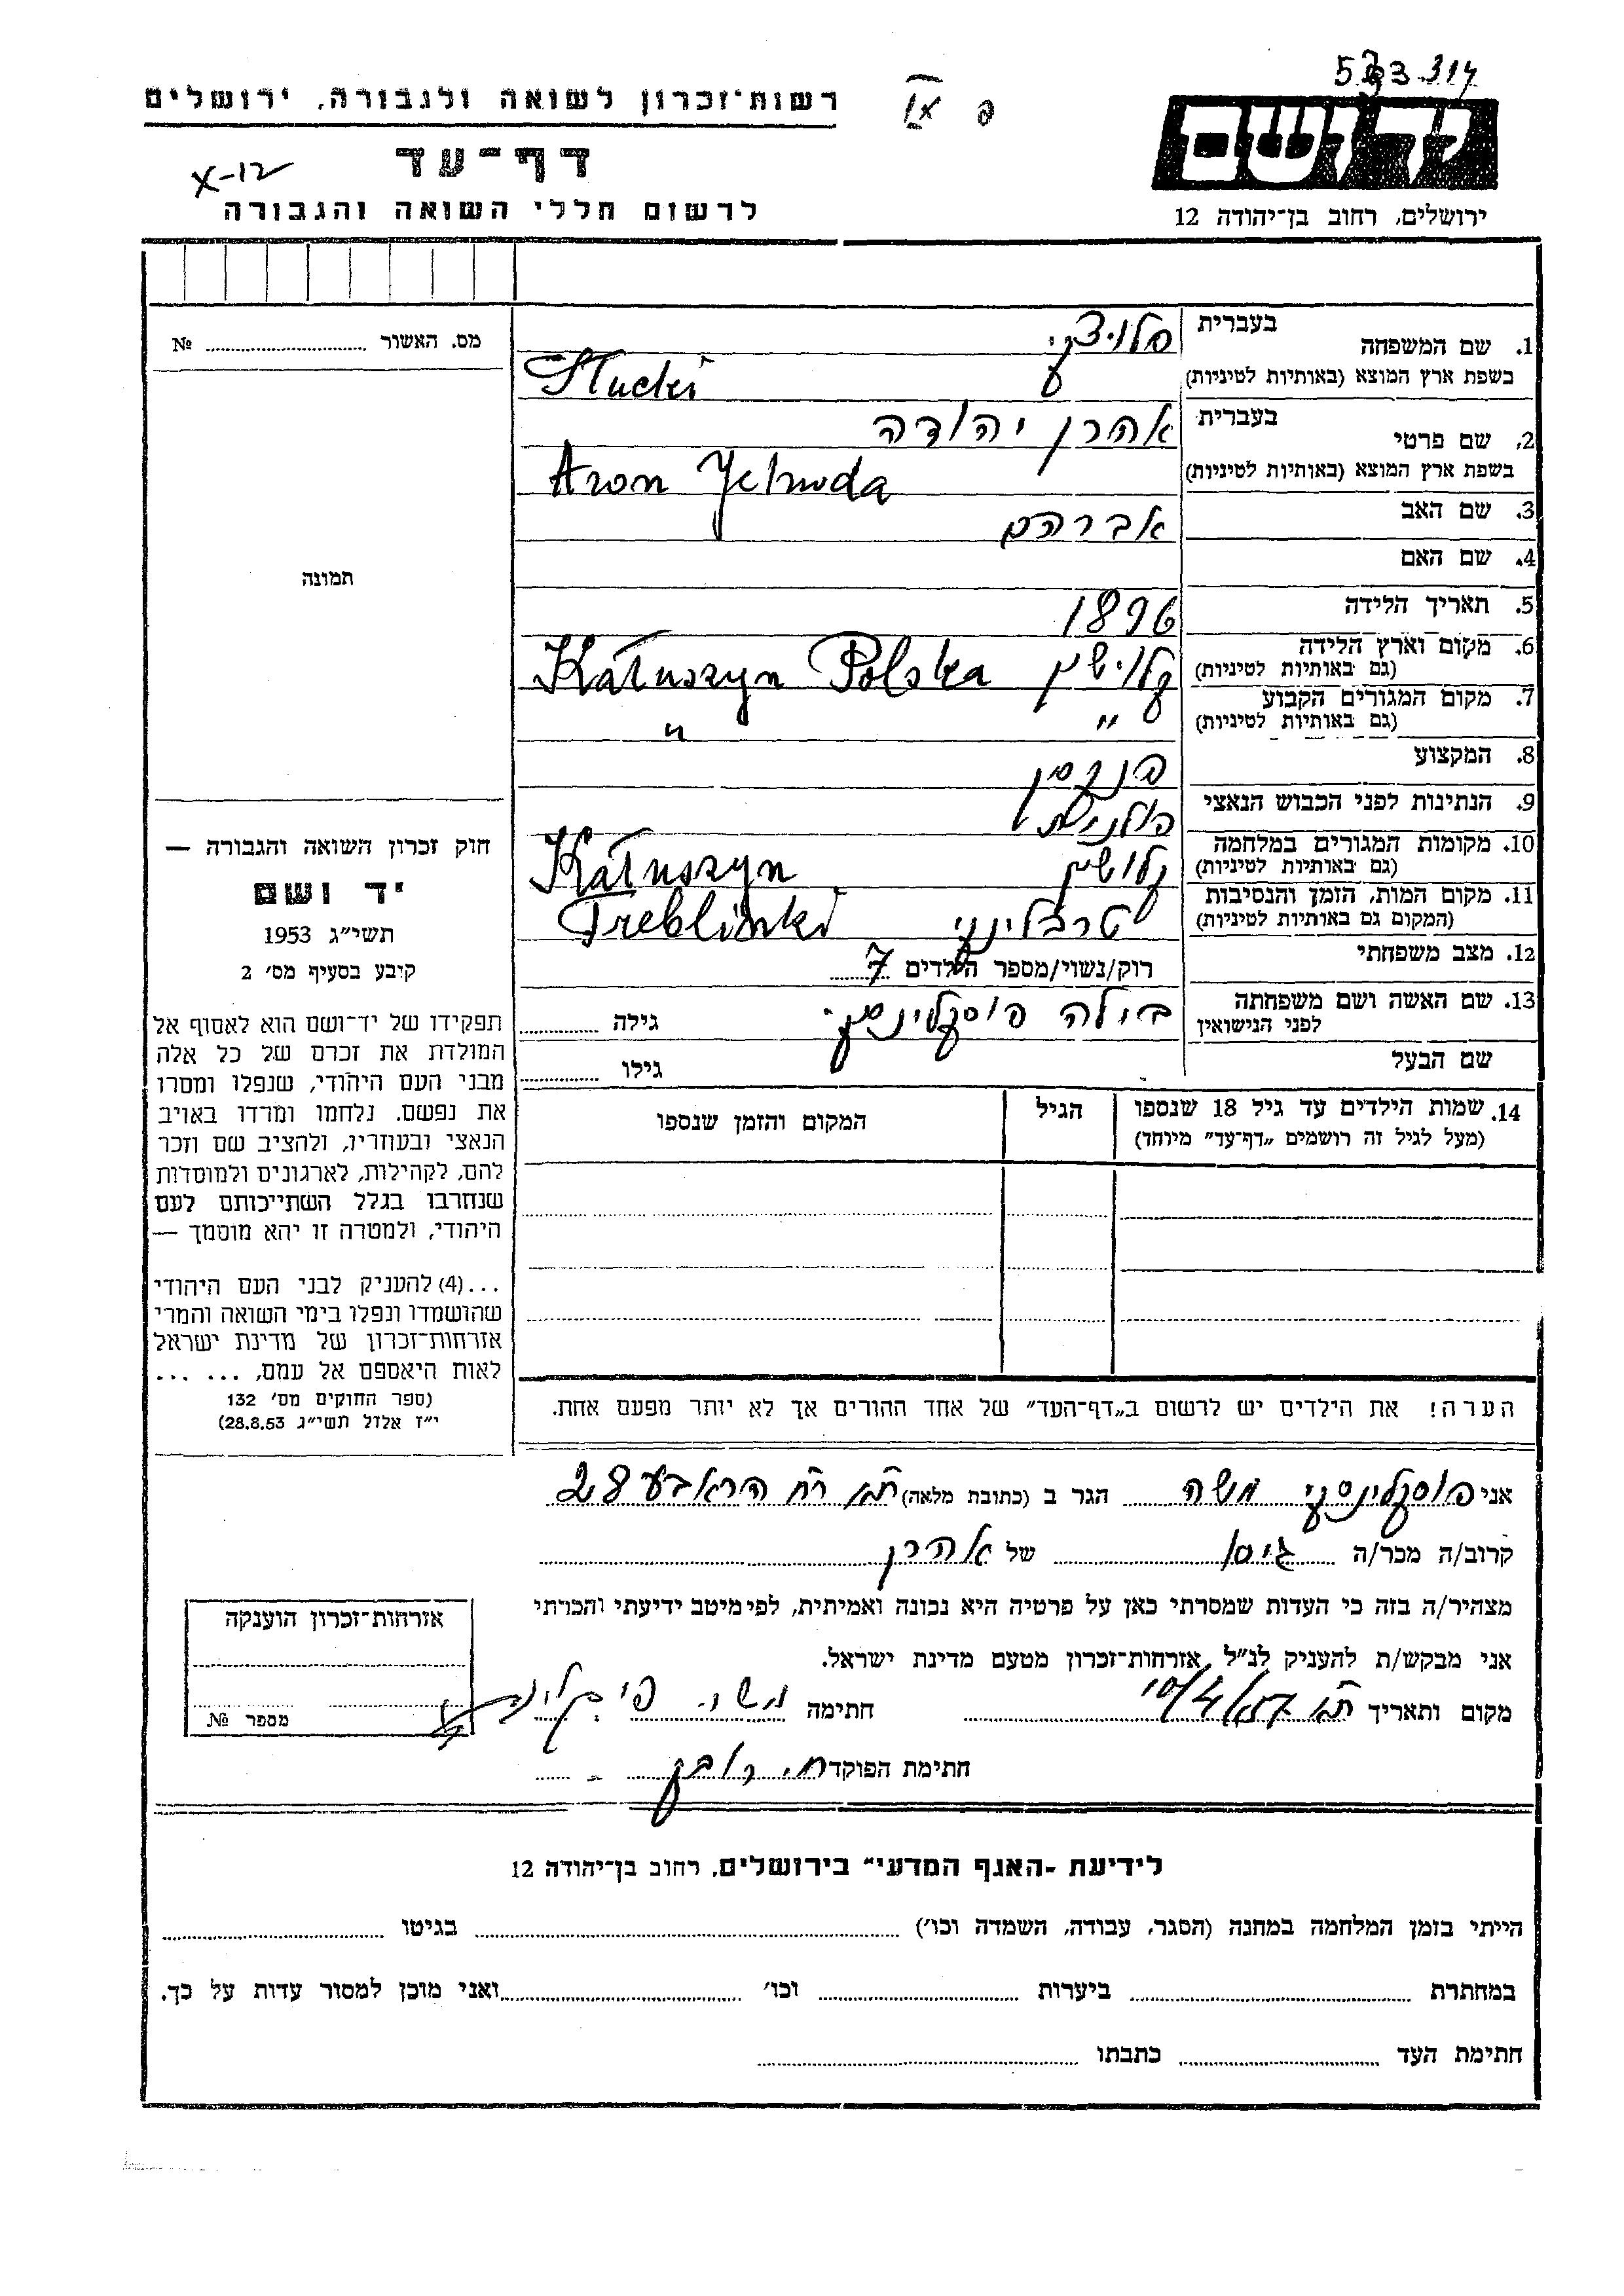 רשות־זכרון לשואה ולגבורה, ירושלים
דף־עד
X-12
לרשום חללי השואה והגבורה
ירושלים, רחוב בן־יהודה 12
מס. האשור № 
תמונה
חוק זכרון השואה והגבורה —
יד ושם
תשי״ג 1953
קיבע בסעיף מס׳ 2
תפקידו של יד־ושם הוא לאסוף אל
המולדת את זכרם של כל אלה
מבני העם היהודי, שנפלו ומסרו
את נפשם. נלחמו ומרדו באויב
הנאצי ובעוזריו, ולהציב שם וזכר
להם, לקהילות, לארגונים ולמוסדות
שנחרבו בגלל השתייכותם לעם
היהודי, ולמטרה זו יהא מוסמך —
...(4) להעניק לבני העם היהודי
שהושמדו ונפלו בימי השואה והמרי
אזרחות־זכרון של מדינת ישראל
לאות היאספם אל עמם, ... ...
(ספר החוקים מס׳ 132
י״ז אלול תשי״ג 28.8.53)
1. שם המשפחה
בעברית סלויצקי
בשפת ארץ המוצא (באותיות לטיניות) Słucki
2. שם פרטי
בעברית אהרן יהודה
בשפת ארץ המוצא (באותיות לטיניות) Aron Yehuda
3. שם האב אברהם
4. שם האם
5. תאריך הלידה 1896
6. מקום וארץ הלידה
(גם באותיות לטיניות) קלוישין Kałuszyn Polska
7. מקום המגורים הקבוע
(גם באותיות לטיניות) ״ ״
8. המקצוע
9. הנתינות לפני הכבוש הנאצי פולנית
10. מקומות המגורים במלחמה
(גם באותיות לטיניות) קלושין Kałuszyn
11. מקום המות, הזמן והנסיבות
(המקום גם באותיות לטיניות) טרבלינקי Treblinki
12. מצב משפחתי רוק/נשוי/מספר הילדים 7
13. שם האשה ושם משפחתה
לפני הנישואין בילה פוסקלינסקי גילה
שם הבעל גילו
14. שמות הילדים עד גיל 18 שנספו
(מעל לגיל זה רושמים „דף־עד״ מיוחד)
הגיל
המקום והזמן שנספו
הערה! את הילדים יש לרשום ב„דף־העד״ של אחד ההורים אך לא יותר מפעם אחת.
אני פוסקלינסקי משה הגר ב (כתובת מלאה) ת״א רח׳ 28
קרוב/ה מכר/ה גיסו של אהרן
מצהיר/ה בזה כי העדות שמסרתי כאן על פרטיה היא נכונה ואמיתית, לפי מיטב ידיעתי והכרתי
אני מבקש/ת להעניק לנ״ל אזרחות־זכרון מטעם מדינת ישראל.
מקום ותאריך ת״א חתימה
חתימת הפוקד
אזרחות־זכרון הוענקה
מספר №
לידיעת „האגף המדעי״ בירושלים, רחוב בן־יהודה 12
הייתי בזמן המלחמה במחנה (הסגר, עבודה, השמדה וכו׳) בגיטו
במחתרת ביערות וכו׳ ואני מוכן למסור עדות על כך.
חתימת העד כתבתו